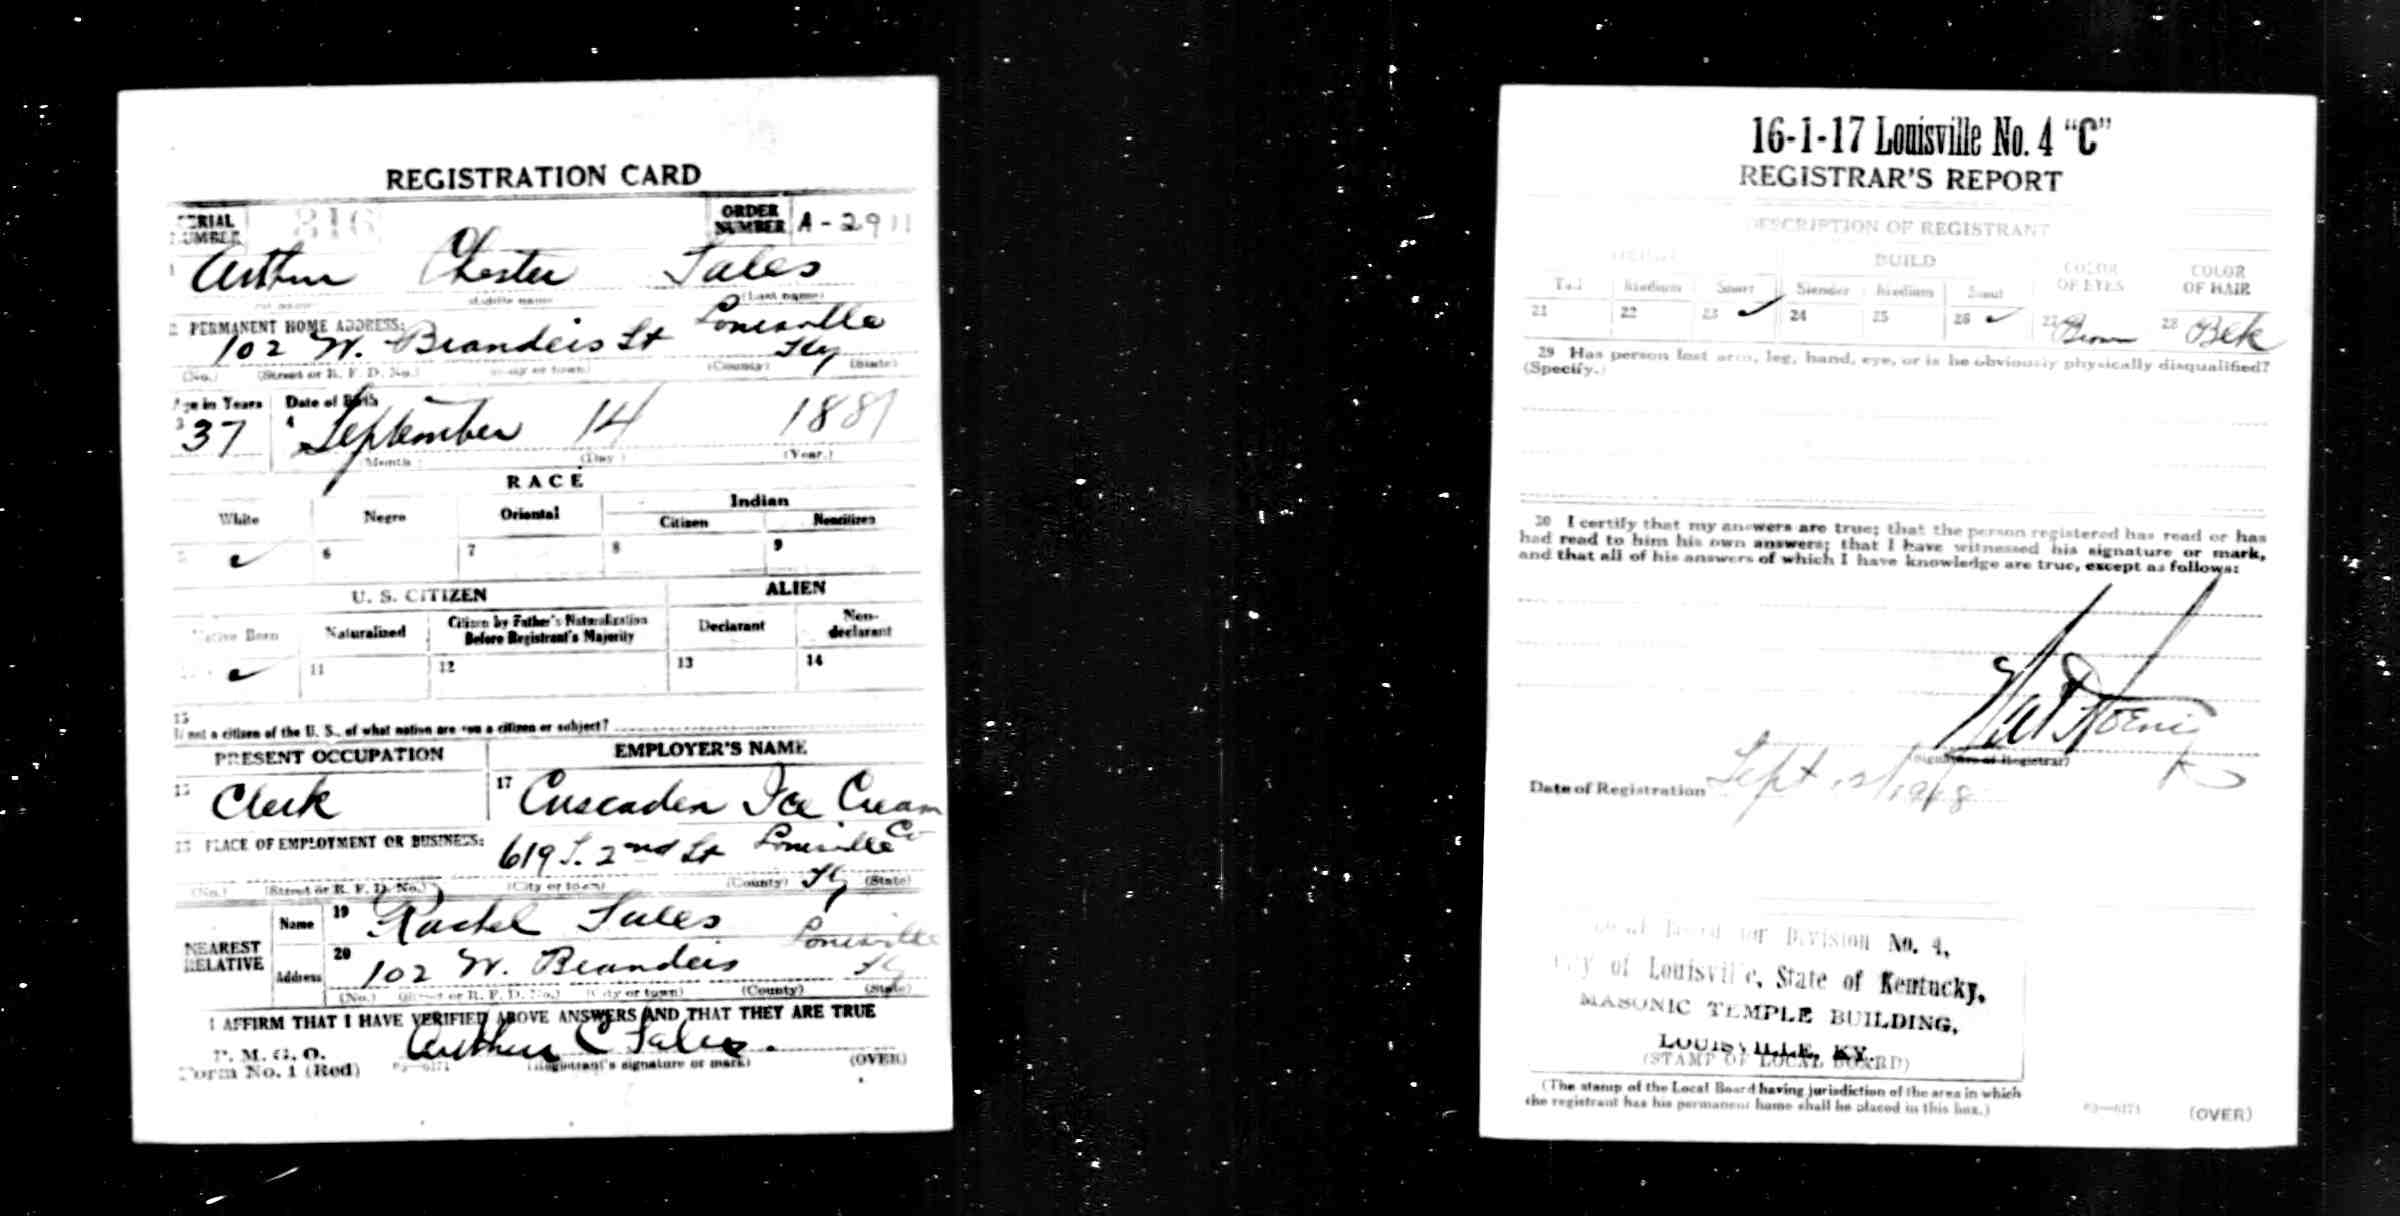 REGISTRATION CARD
SERIAL NUMBER 316 ORDER NUMBER A-2911
1 Arthur Chester Sales
(First name) (Middle name) (Last name)
2 PERMANENT HOME ADDRESS:
102 W. Brandeis St Louisville Ky
(No.) (Street or R. F. D. No.) (City or town) (County) (State)
Age in Years Date of Birth
3 37 4 September 14 1881
(Month) (Day) (Year.)
RACE
White Negro Oriental Indian
Citizen Noncitizen
5 ✓ 6 7 8 9
U. S. CITIZEN ALIEN
Native Born Naturalized Citizen by Father's Naturalization Before Registrant's Majority Declarant Non-declarant
10 ✓ 11 12 13 14
15
If not a citizen of the U. S., of what nation are you a citizen or subject?
PRESENT OCCUPATION EMPLOYER'S NAME
16 Clerk 17 Cuscaden Ice Cream Co
18 PLACE OF EMPLOYMENT OR BUSINESS:
619 S. 2nd St Louisville Ky
(No.) (Street or R. F. D. No.) (City or town) (County) (State)
NEAREST RELATIVE
Name 19 Rachel Sales
Address 20 102 W. Brandeis Louisville Ky
(No.) (Street or R. F. D. No.) (City or town) (County) (State)
I AFFIRM THAT I HAVE VERIFIED ABOVE ANSWERS AND THAT THEY ARE TRUE
P. M. G. O.
Form No. 1 (Red) 03—6171 Arthur C Sales.
(Registrant's signature or mark) (OVER)
16-1-17 Louisville No. 4 "C"
REGISTRAR'S REPORT
DESCRIPTION OF REGISTRANT
HEIGHT BUILD COLOR OF EYES COLOR OF HAIR
Tall Medium Short Slender Medium Stout
21 22 23 ✓ 24 25 26 ✓ 27 Brown 28 Blck
29 Has person lost arm, leg, hand, eye, or is he obviously physically disqualified?
(Specify.)
30 I certify that my answers are true; that the person registered has read or has
had read to him his own answers; that I have witnessed his signature or mark,
and that all of his answers of which I have knowledge are true, except as follows:
(Signature of Registrar)
Date of Registration Sept 12/1918
Local Board for Division No. 4,
City of Louisville, State of Kentucky,
MASONIC TEMPLE BUILDING,
LOUISVILLE, KY.
(STAMP OF LOCAL BOARD)
(The stamp of the Local Board having jurisdiction of the area in which
the registrant has his permanent home shall be placed in this box.)
03—6171 (OVER)